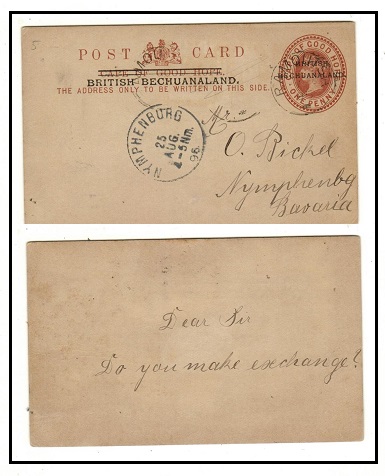 5
POST CARD
CAPE OF GOOD HOPE
BRITISH BECHUANALAND.
THE ADDRESS ONLY TO BE WRITTEN ON THIS SIDE.
OF GOOD HOPE
BRITISH
BECHUANALAND
ONE PENNY
NYMPHENBURG
25
AUG.
4-5Nm.
96.
O. Bickel
Nymphenbg
Bavaria
Dear Sir
Do you make exchange?